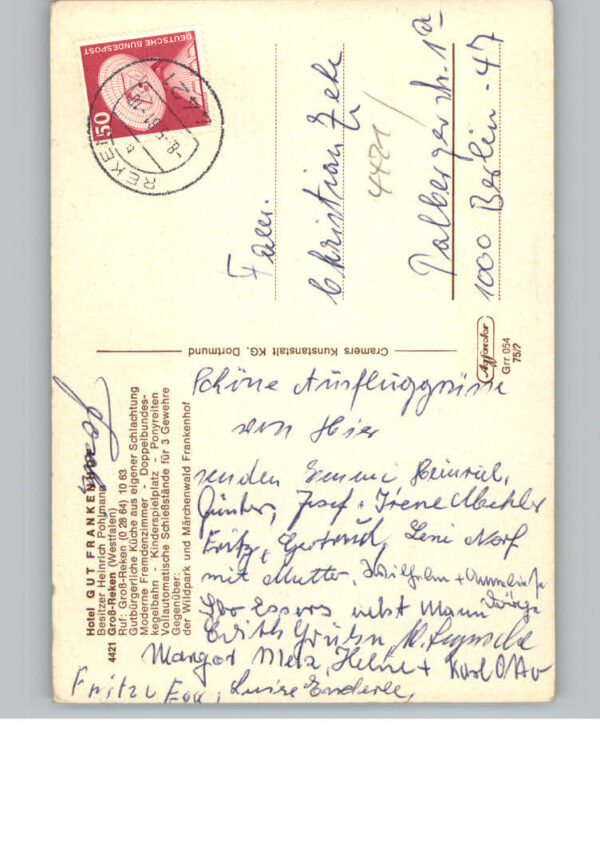 Hotel GUT FRANKENHOF
Besitzer Heinrich Pohlmann
4421 Groß-Reken (Westfalen)
Ruf: Groß-Reken (0 28 64) 10 63
Gutbürgerliche Küche aus eigener Schlachtung
Moderne Fremdenzimmer - Doppelbundes-
kegelbahn - Kinderspielplatz - Ponyreiten
Vollautomatische Schießstände für 3 Gewehre
Gegenüber:
der Wildpark und Märchenwald Frankenhof
Schöne Ausfluggrüsse
von Hier
senden Emmi Heinrich,
Günter, Josef + Irene
Fritz, Gertrud, Leni
mit Mutter, Wilhelm + Anneliese
Essers nebst Mann
Edith
Margot Merz, Helne + Karl Otto
Fritz u Eva, Luise Enderle,
Cramers Kunstanstalt KG, Dortmund
Agfacolor
Grr 054
75/?
DEUTSCHE BUNDESPOST
50
4421
REKEN
-8.-5.81-18
a
Fam.
Christian Zeh
4421
Talbergerstr. 1a
1000 Berlin - 47